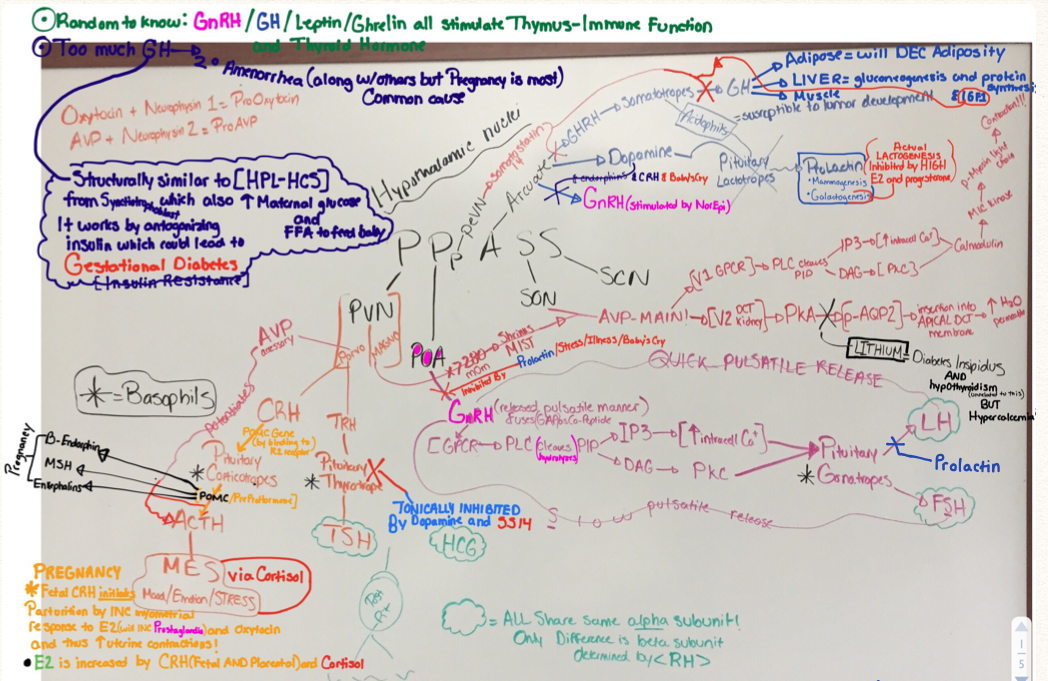 Random to know: GnRH / GH / Leptin / Ghrelin all stimulate Thymus-Immune Function
and Thyroid Hormone
Too much GH → 2° Amenorrhea (along w/others but Pregnancy is most)
Common cause
Oxytocin + Neurophysin 1 = ProOxytocin
AVP + Neurophysin 2 = ProAVP
Structurally similar to [HPL-HCS]
which also ↑ Maternal glucose
and
FFA to feed baby
It works by antagonizing
insulin which could lead to
Gestational Diabetes
[Insulin Resistance]
Hypothalamic nuclei
P P P A S S
PeVN → Somatostatin
Arcuate
GHRH → Somatotropes → GH
Adipose = will DEC Adiposity
LIVER = gluconeogenesis and protein synthesis
& IGF1
Muscle
Acidophils = susceptible to tumor development
Dopamine
Pituitary
Lactotropes
Prolactin
• Mammogenesis
• Galactogenesis
Actual
LACTOGENESIS
Inhibited by HIGH
E2 and progesterone
& CRH & Baby's Cry
GnRH (stimulated by NorEpi)
Contraction!!!
MLC kinase
SCN
SON
[V1 GPCR] → PLC cleaves PIP
IP3 → [↑ intracell Ca+]
DAG → [PKC]
Calmodulin
AVP-MAIN! → [V2 DCT Kidney] → PKA → [p-AQP2] → insertion into
APICAL DCT
membrane
→ ↑ H2O
LITHIUM = Diabetes Insipidus
AND
hypothyroidism
(unrelated to this)
BUT
Hypercalcemia
PVN
Parvo
MAGNO
AVP
accessory
potentiates
POA
Inhibited By Prolactin/Stress/Illness/Baby's Cry
QUICK PULSATILE RELEASE
* = Basophils
CRH
POMC Gene
TRH
GnRH (released pulsatile manner)
[GPCR → PLC (cleaves) PIP
hydrolyzes
IP3 → [↑ intracell Ca+]
DAG → PKC
Pituitary
* Gonatropes
LH
Prolactin
FSH
Slow pulsatile release
Pregnancy
B-Endorphin
MSH
Enkephalins
POMC
Pituitary
* Corticotropes
ACTH
Pituitary
* Thyrotrope
TONICALLY INHIBITED
By Dopamine and SS14
TSH
HCG
MES via Cortisol
Mood/Emotion/STRESS
PREGNANCY
* Fetal CRH initiates
Parturition by INC myometrial
response to E2 (will INC Prostaglandin) and Oxytocin
and thus ↑ uterine contractions!
• E2 is increased by CRH (Fetal AND Placental) and Cortisol
= ALL Share same alpha subunit!
Only Difference is beta subunit
determined by <RH>
1
5